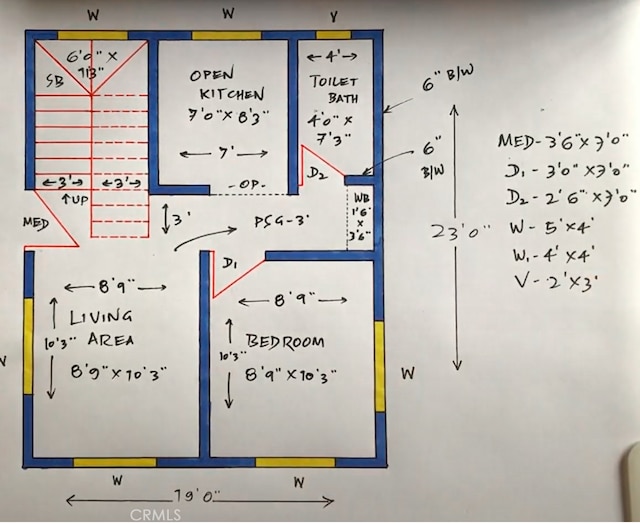 W
W
V
6'0" X
11'3"
SB
OPEN
KITCHEN
7'0" X 8'3"
7'
4'
TOILET
BATH
4'0" X
7'3"
6" B/W
6"
B/W
MED-3'6"X7'0"
D1 - 3'0" X7'0"
D2 - 2'6" X7'0"
W - 5'X4'
W1 - 4'X4'
V - 2'X3'
3'
3'
↑UP
-OP-
D2
WB
1'6"
X
3'6"
MED
3'
PSG-3'
23'0"
D1
8'9"
LIVING
AREA
10'3"
8'9" X 10'3"
8'9"
BEDROOM
10'3"
8'9" X 10'3"
W
W
W
19'0"
CRMLS